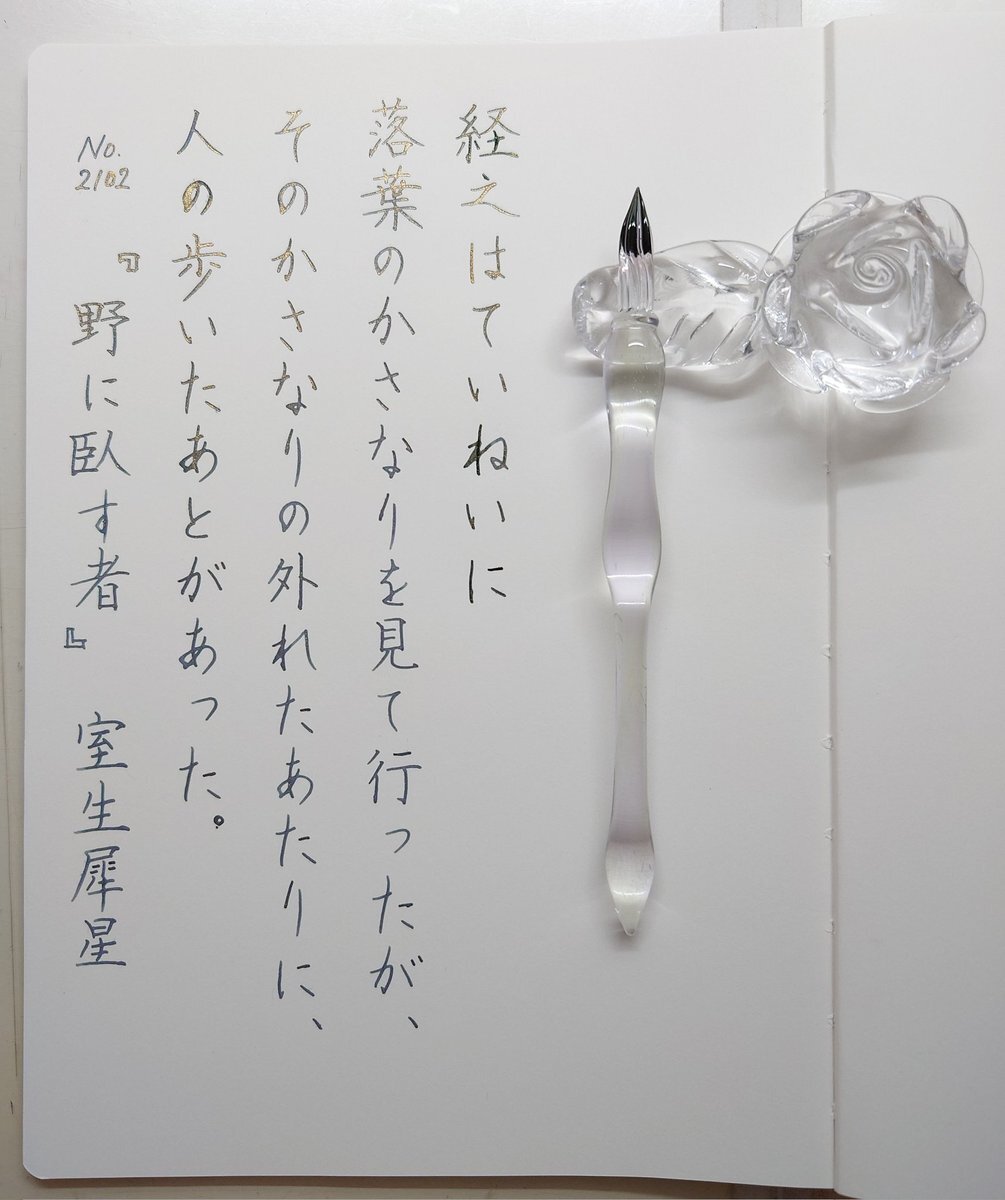 経之はていねいに
落葉のかさなりを見て行ったが、
そのかさなりの外れたあたりに、
人の歩いたあとがあった。
No.
2102
『野に臥す者』 室生犀星